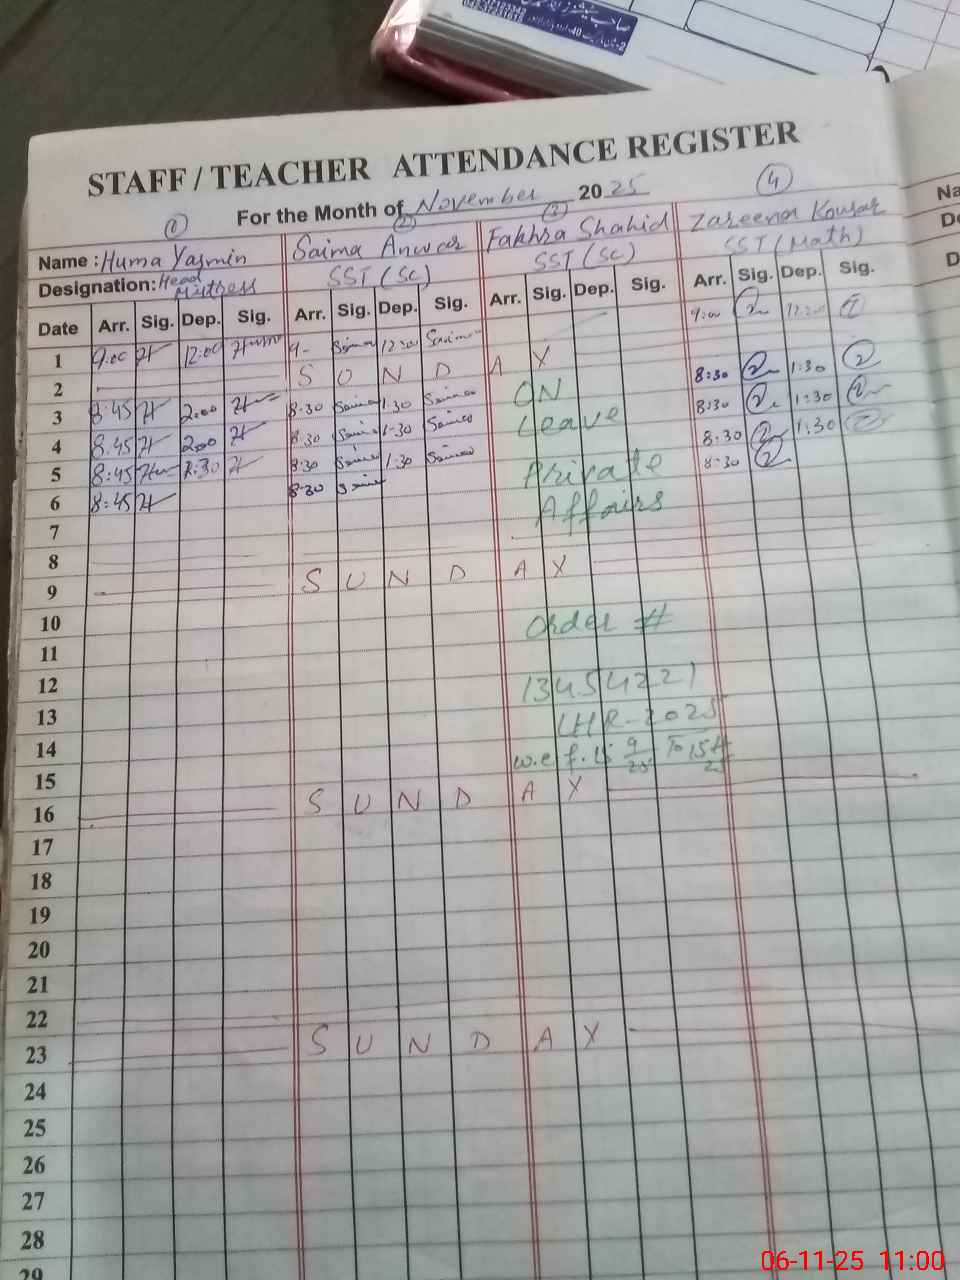 STAFF / TEACHER ATTENDANCE REGISTER
For the Month of November 2025
1 2 3 4
Name : Huma Yasmin Saima Anwar Fakhra Shahid Zareena Kousar
Designation: Head Mistress SST (Sc) SST (Sc) SST (Math)
Date Arr. Sig. Dep. Sig. Arr. Sig. Dep. Sig. Arr. Sig. Dep. Sig. Arr. Sig. Dep. Sig.
1 9:00 12:00 9- 12:00 9:00 12:00
2 S U N D A Y
3 8:45 2:00 8:30 1:30 ON 8:30 1:30
4 8:45 2:00 8:30 1:30 Leave 8:30 1:30
5 8:45 1:30 8:30 1:30 Private 8:30 1:30
6 8:45 8:30 Affairs 8:30
7
8
9 S U N D A Y
10 Order #
11
12 13454221
13 LHR-2025
14 w.e.f.
15
16 S U N D A Y
17
18
19
20
21
22
23 S U N D A Y
24
25
26
27
28
29
Na
De
D
06-11-25 11:00